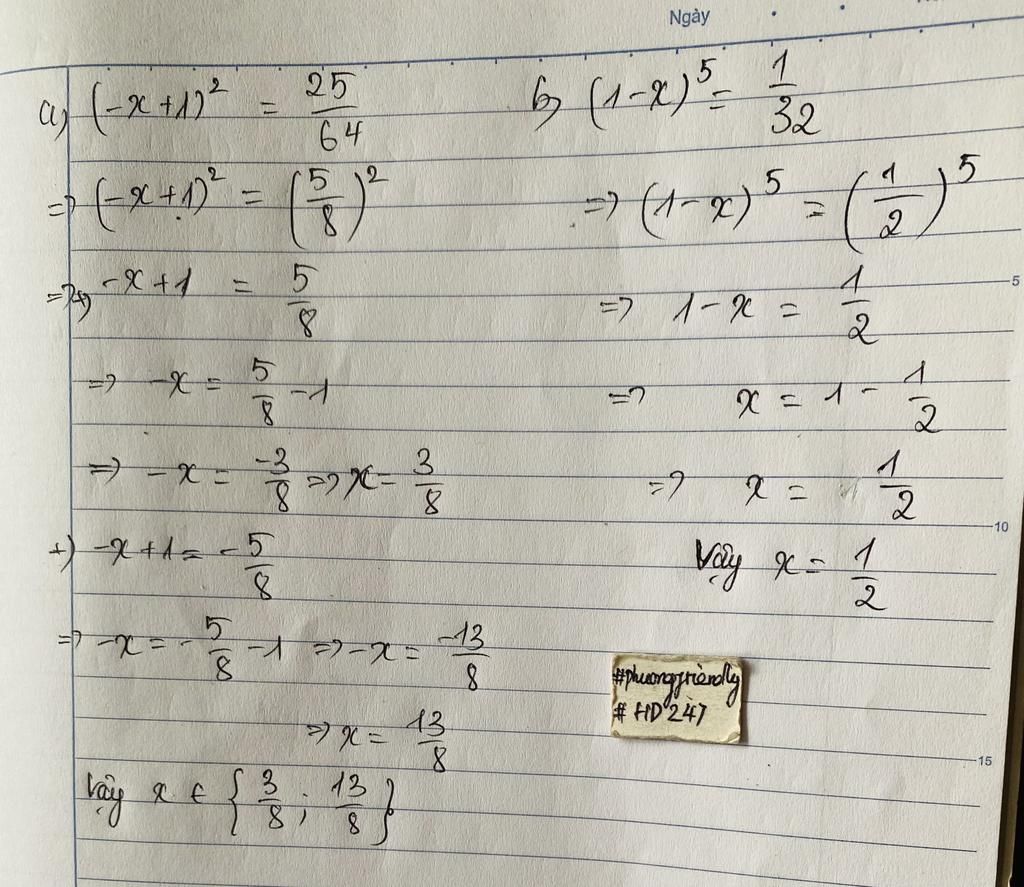 Ngày
a) (-x+1)² = 25/64
=> (-x+1)² = (5/8)²
=> +) -x+1 = 5/8
=> -x = 5/8 - 1
=> -x = -3/8 => x = 3/8
+) -x+1 = -5/8
=> -x = -5/8 - 1 => -x = -13/8
=> x = 13/8
Vậy x ∈ {3/8; 13/8}
b) (1-x)⁵ = 1/32
=> (1-x)⁵ = (1/2)⁵
=> 1-x = 1/2
=> x = 1 - 1/2
=> x = 1/2
Vậy x = 1/2
#phuongfriendly
# HD247
5
10
15